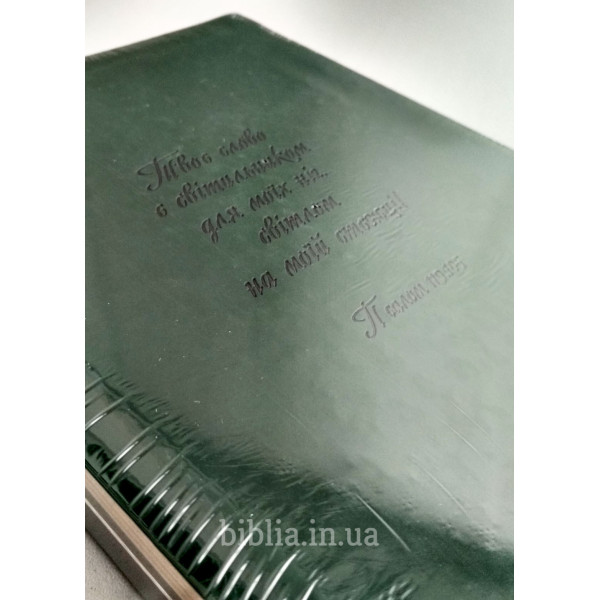 Твоє слово
є світильником
для моїх ніг,
світлом
на моїй стежці!
Псалом 119:105
biblia.in.ua